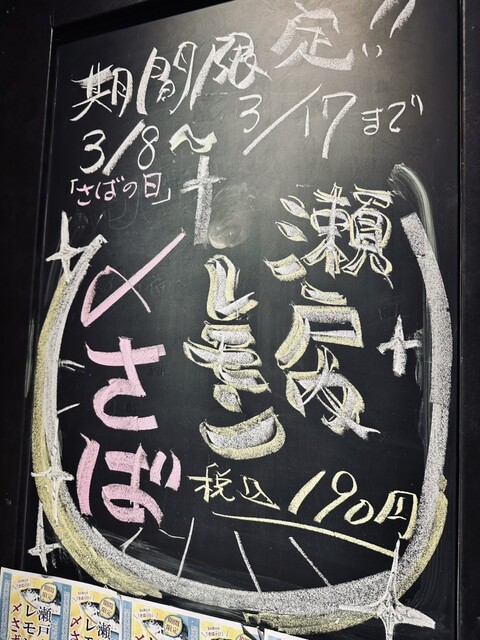 期間限定!!
3/8〜3/17まで
「さばの日」
瀬戸内
レモン
〆さば
税込190円
瀬戸
レモ
〆さ